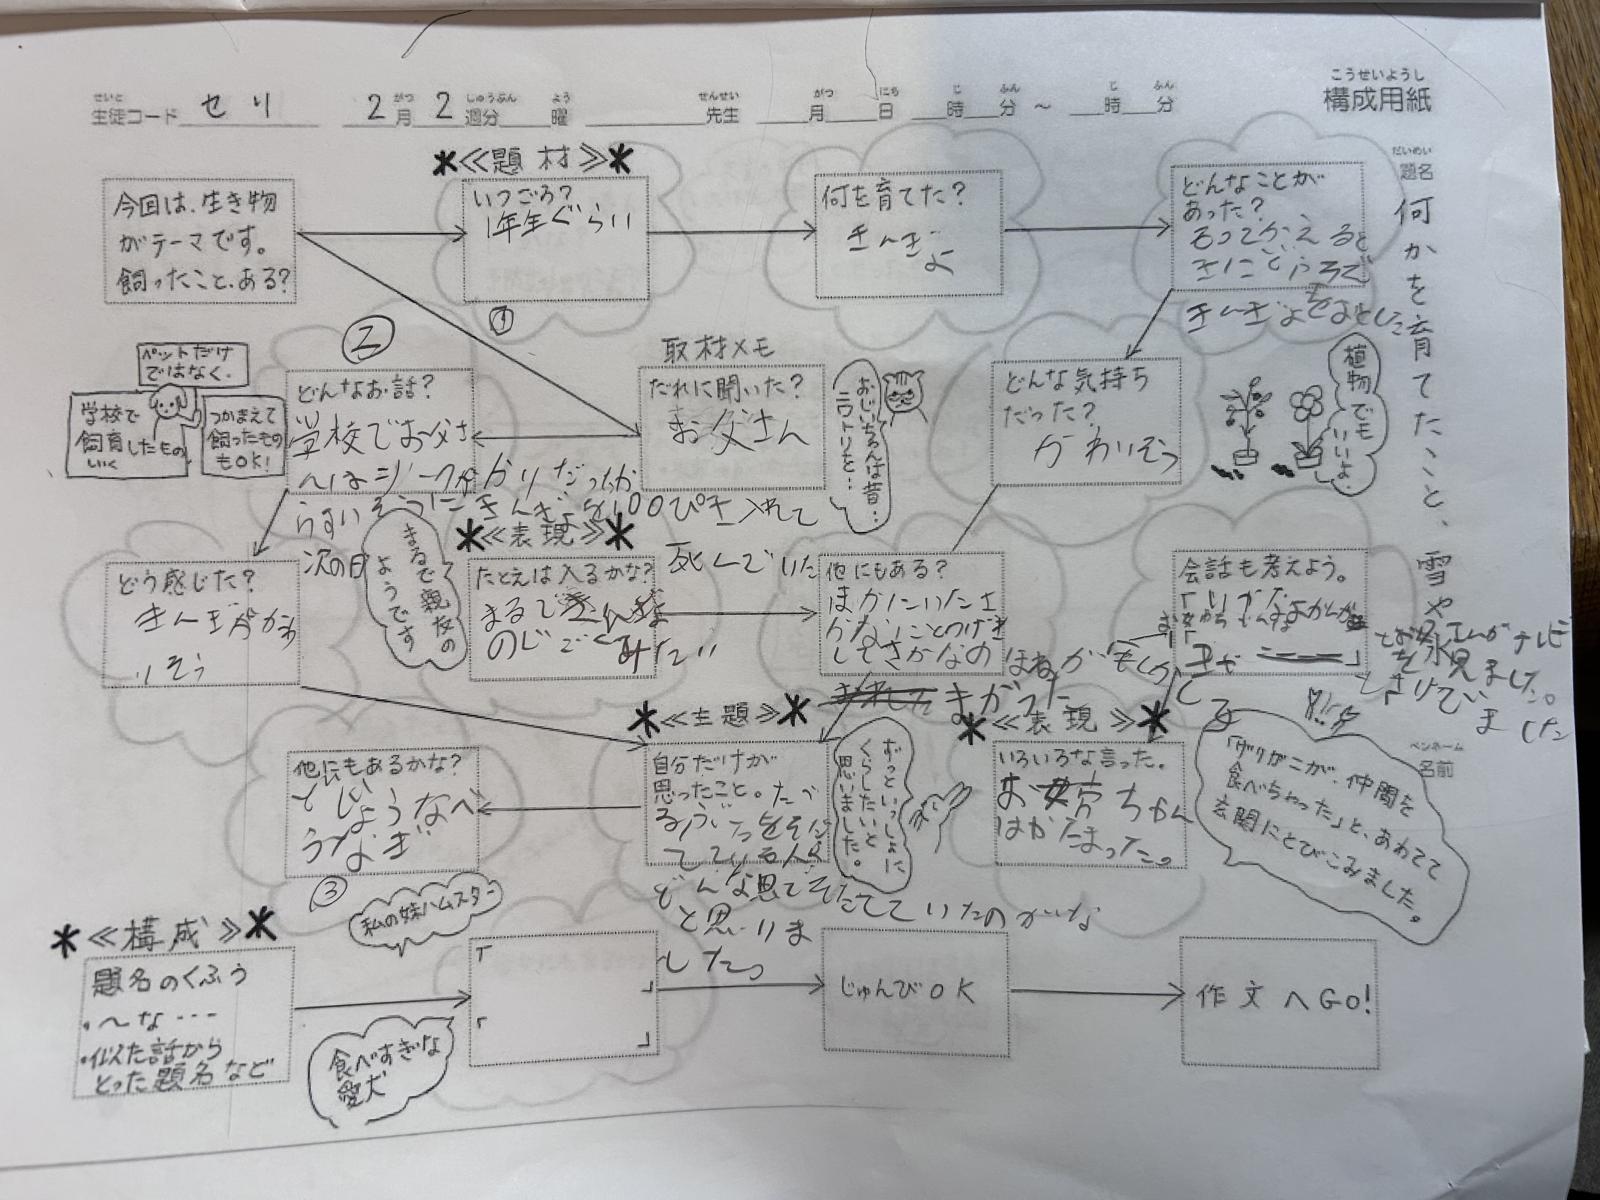 こうせいようし
構成用紙
せいと がつ しゅうぶん よう せんせい がつ にち じ ふん じ ふん
生徒コード セリ 2月 2週分 曜 先生 月 日 時 分 ～ 時 分
だいめい
題名
何かを育てたこと、雪や氷
ペンネーム
名前
今回は、生き物
がテーマです。
飼ったこと、ある?
*≪題材≫*
いつごろ?
1年生ぐらい
①
何を育てた?
きんぎょ
どんなことが
あった?
もってかえると
きに
きんぎょをおとした
植物でも
いいよ。
どんな気持ち
だった?
かわいそう
取材メモ
だれに聞いた?
お父さん
おじいちゃんは昔…
ニワトリを…
②
どんなお話?
学校でお父さ
んは
きんぎょを100ぴき入れて
次の日
死んでいた
ペットだけ
ではなく、
学校で
飼育したもの
いく
つかまえて
飼ったもの
もOK!
どう感じた?
きんぎょがかわ
いそう
まるで親友の
ようです
*≪表現≫*
たとえは入るかな?
まるで
みたい
他にもある?
ほかにいたさ
かな
さかなの
ほねが
まがった
会話も考えよう。
お父さんがテレビ
を見ました。
さけんでい
ました
「ザリガニが、仲間を
食べちゃった」と、あわてて
玄関にとびこみました。
*≪表現≫*
いろいろな言った。
お姉ちゃん
はかたまった。
*≪主題≫*
自分だけが
思ったこと。たべ
る
どんな思いでそだてていたのかな
と思いま
した。
ずっといっしょに
くらしたいと
思いました。
他にもあるかな?
どじょうなべ
うなぎ
③
私の妹ハムスター
*≪構成≫*
題名のくふう
・〜な…
・似た話から
とった題名など
食べすぎな
愛犬
「 」
「 」
じゅんびOK
作文へGO!